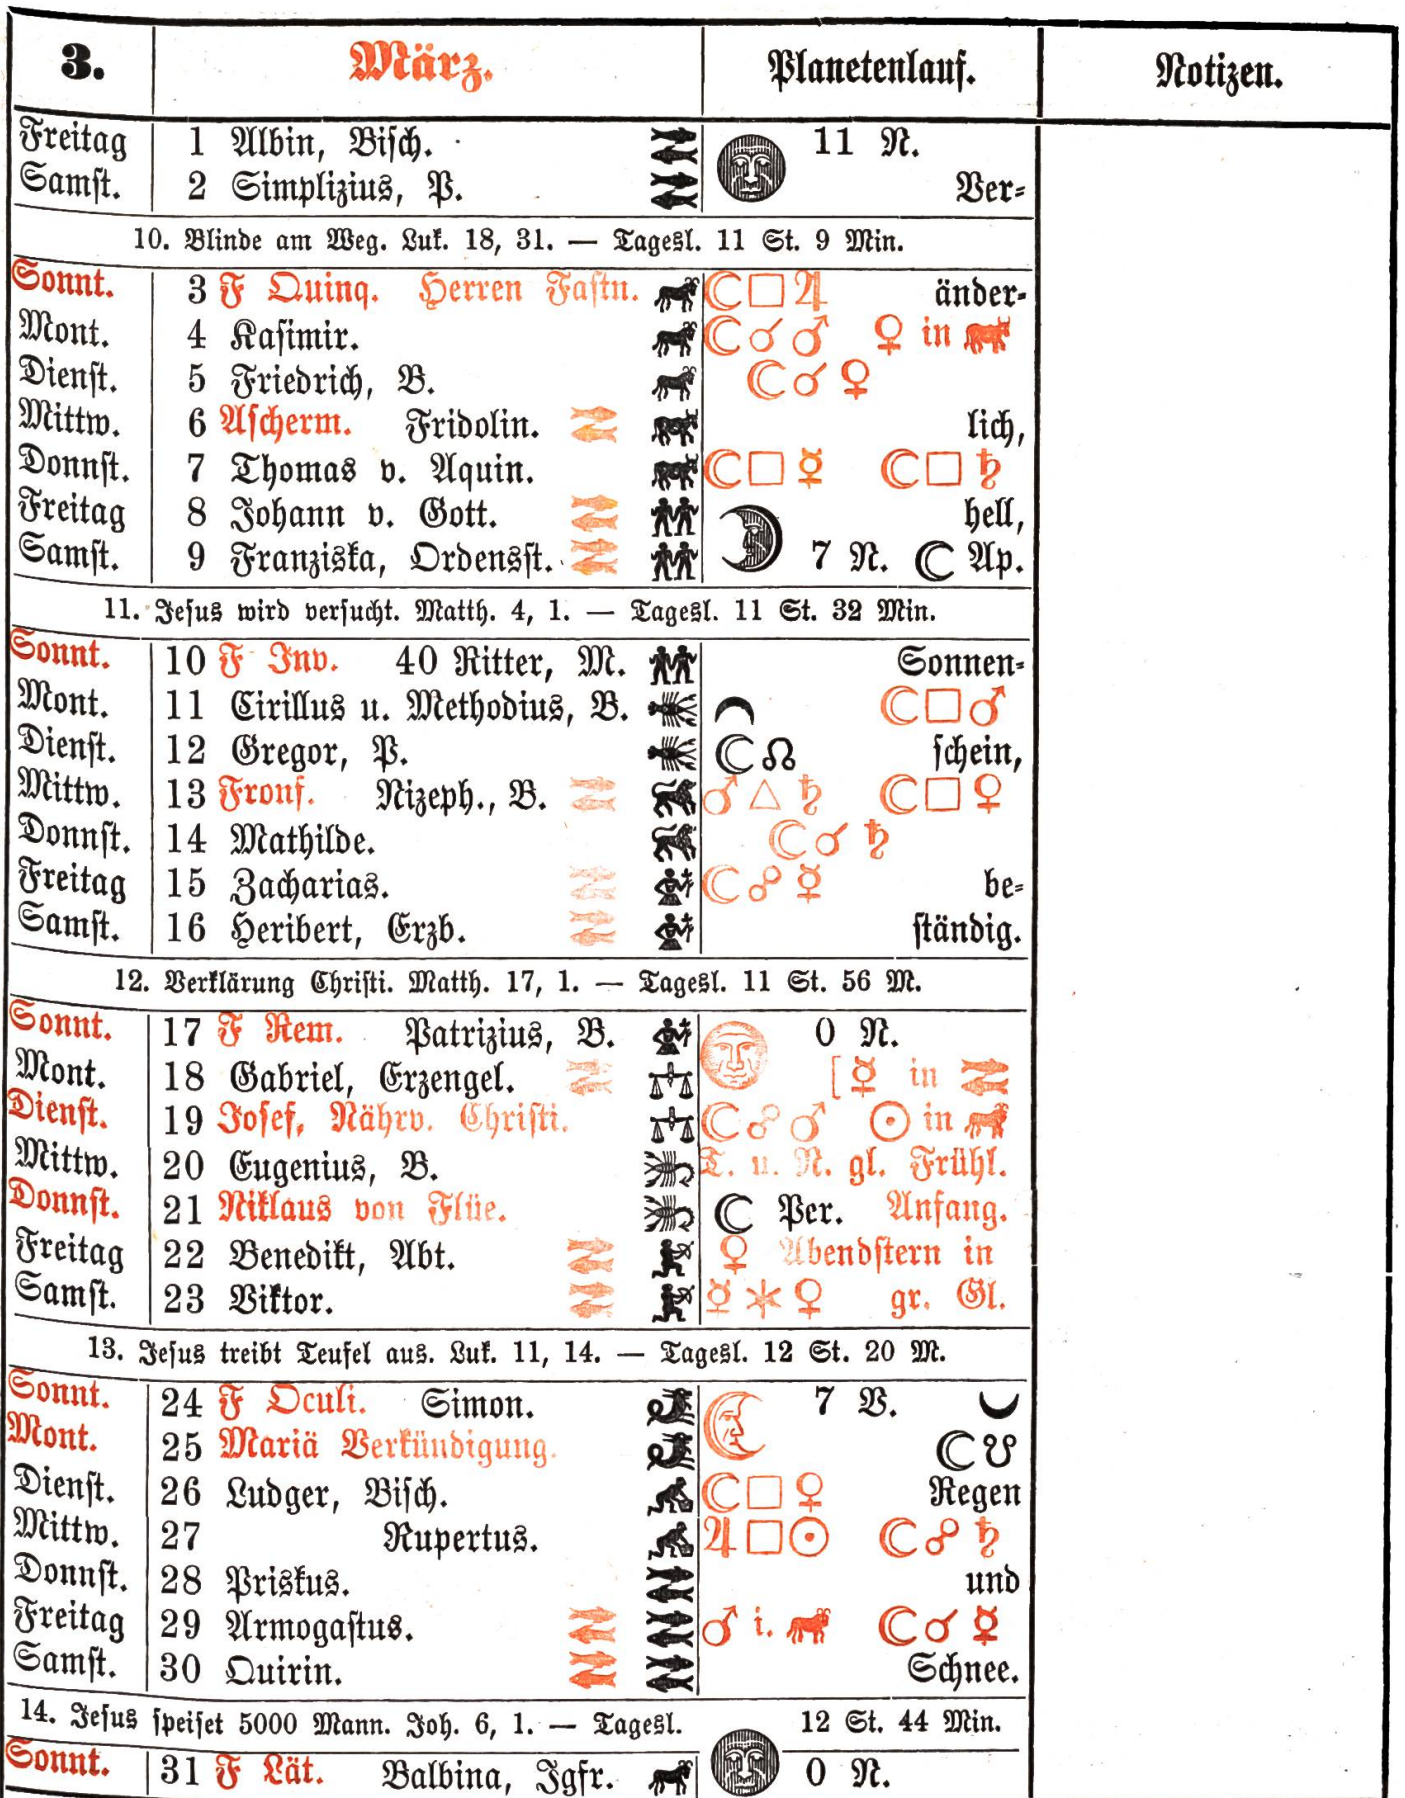 3. März. Planetenlauf. Notizen.
Freitag 1 Albin, Bisch. 11 N.
Samst. 2 Simplizius, P. Ver-
10. Blinde am Weg. Luk. 18, 31. — Tagesl. 11 St. 9 Min.
Sonnt. 3 F Quinq. Herren Fastn. ☾□♃ änder-
Mont. 4 Kasimir. ☾☌♂ ♀ in
Dienst. 5 Friedrich, B. ☾☌♀
Mittw. 6 Ascherm. Fridolin. lich,
Donnst. 7 Thomas v. Aquin. ☾□☿ ☾□♄
Freitag 8 Johann v. Gott. hell,
Samst. 9 Franziska, Ordensst. 7 N. ☾ Ap.
11. Jesus wird versucht. Matth. 4, 1. — Tagesl. 11 St. 32 Min.
Sonnt. 10 F Inv. 40 Ritter, M. Sonnen-
Mont. 11 Cirillus u. Methodius, B. ☾□♂
Dienst. 12 Gregor, P. ☾☊ schein,
Mittw. 13 Fronf. Nizeph., B. ♂△♄ ☾□♀
Donnst. 14 Mathilde. ☾☌♄
Freitag 15 Zacharias. ☾☍☿ be-
Samst. 16 Heribert, Erzb. ständig.
12. Verklärung Christi. Matth. 17, 1. — Tagesl. 11 St. 56 M.
Sonnt. 17 F Rem. Patrizius, B. 0 N.
Mont. 18 Gabriel, Erzengel. [☿ in
Dienst. 19 Josef, Nährv. Christi. ☾☍♂ ☉ in
Mittw. 20 Eugenius, B. T. u. N. gl. Frühl.
Donnst. 21 Niklaus von Flüe. ☾ Per. Anfang.
Freitag 22 Benedikt, Abt. ♀ Abendstern in
Samst. 23 Viktor. ☿⚹♀ gr. Gl.
13. Jesus treibt Teufel aus. Luk. 11, 14. — Tagesl. 12 St. 20 M.
Sonnt. 24 F Oculi. Simon. 7 V.
Mont. 25 Mariä Verkündigung. ☾☋
Dienst. 26 Ludger, Bisch. ☾□♀ Regen
Mittw. 27 Rupertus. ♃□☉ ☾☍♄
Donnst. 28 Priskus. und
Freitag 29 Armogastus. ♂ i. ☾☌☿
Samst. 30 Quirin. Schnee.
14. Jesus speiset 5000 Mann. Joh. 6, 1. — Tagesl. 12 St. 44 Min.
Sonnt. 31 F Lät. Balbina, Jgfr. 0 N.